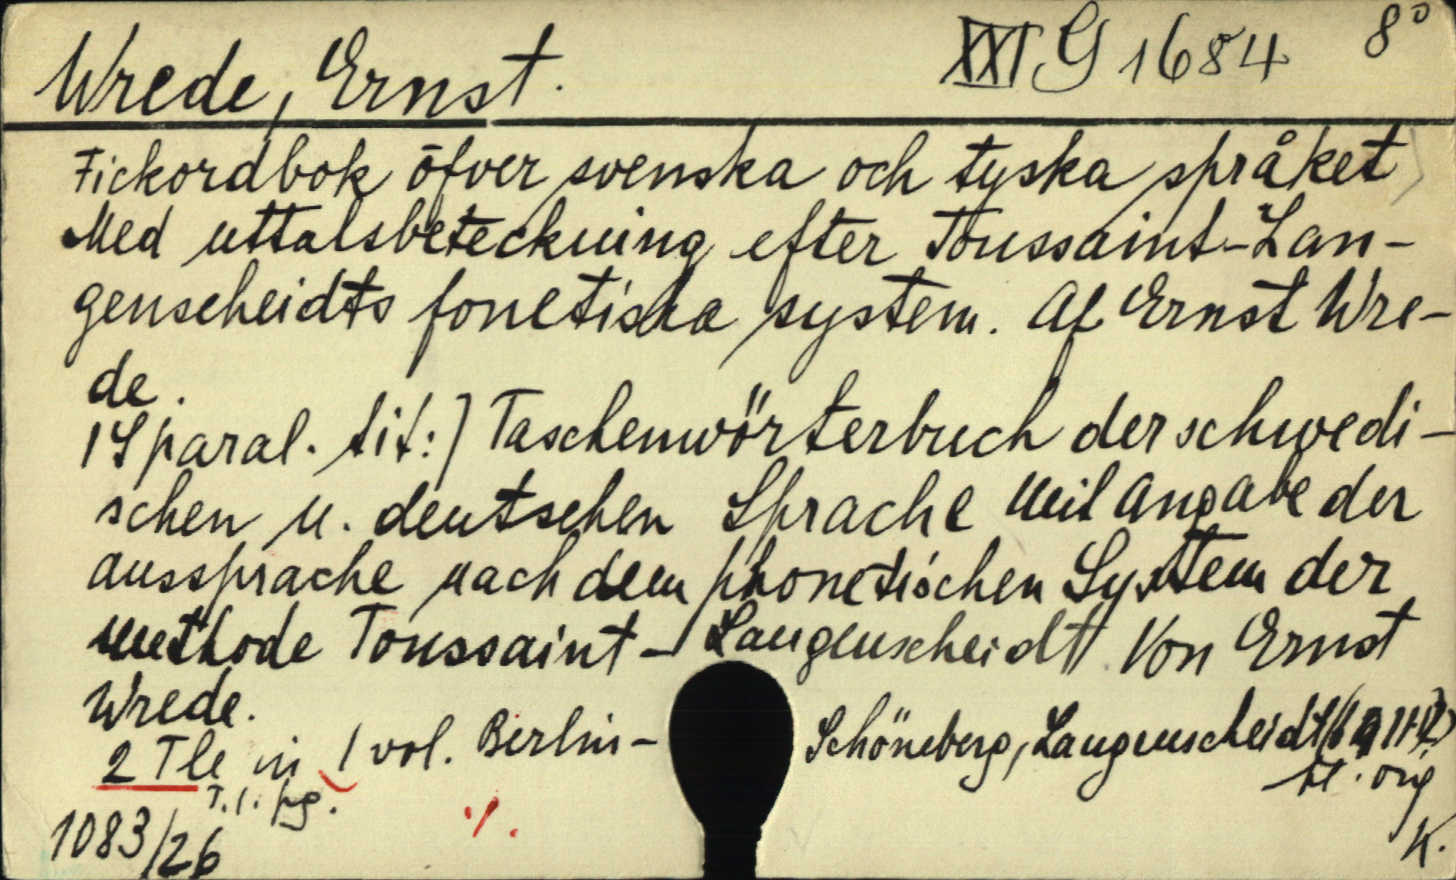 Wrede, Ernst. XXI G 1684 8°
Fickordbok öfver svenska och tyska språket
Med uttalsbeteckning efter Toussaint-Lan-
genscheidts fonetiska system. Af Ernst Wre-
de.
[Sparal. tit:] Taschenwörterbuch der schwedi-
schen u. deutschen Sprache Mit angabe der
aussprache nach dem phonetischen System der
Methode Toussaint-Langenscheidt. Von Ernst
Wrede.
2 Tle in 1 vol. Berlin-Schöneberg, Langenscheidt
T.l. pg. orig
1083/26 K.